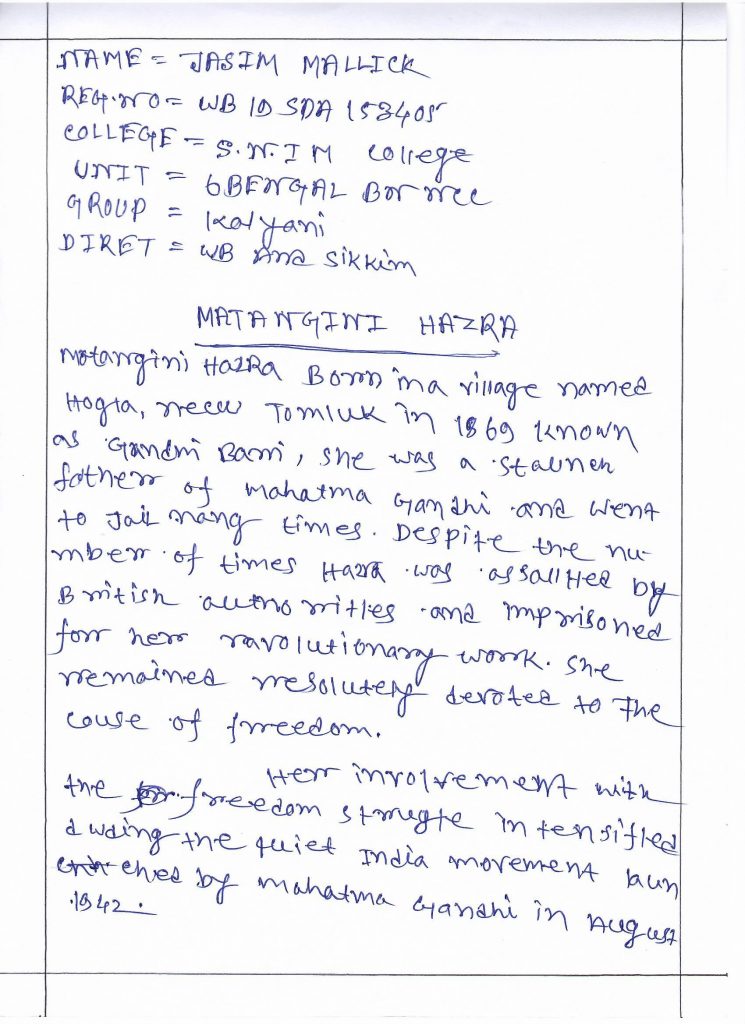 NAME = JASIM MALLICK
REG.NO = WB 19 SDA 153405
COLLEGE = S.N.I M College
UNIT = 6BENGAL Bn NCC
GROUP = Kalyani
DIRET = WB And Sikkim
MATANGINI HAZRA
Matangini Hazra Born in a village named
Hogla, near Tomluk in 1869 known
as Gandhi Bari, she was a staunch
father of Mahatma Gandhi and went
to Jail many times. Despite the nu-
mber of times Hazra was assallted by
British authorities and imprisoned
for her ravolutionary work. She
remained resolutely devoted to The
couse of freedom.
Her involvement with
the freedom strugte intensified
duding the quiet India movement laun
ched by Mahatma Gandhi in August
1942.